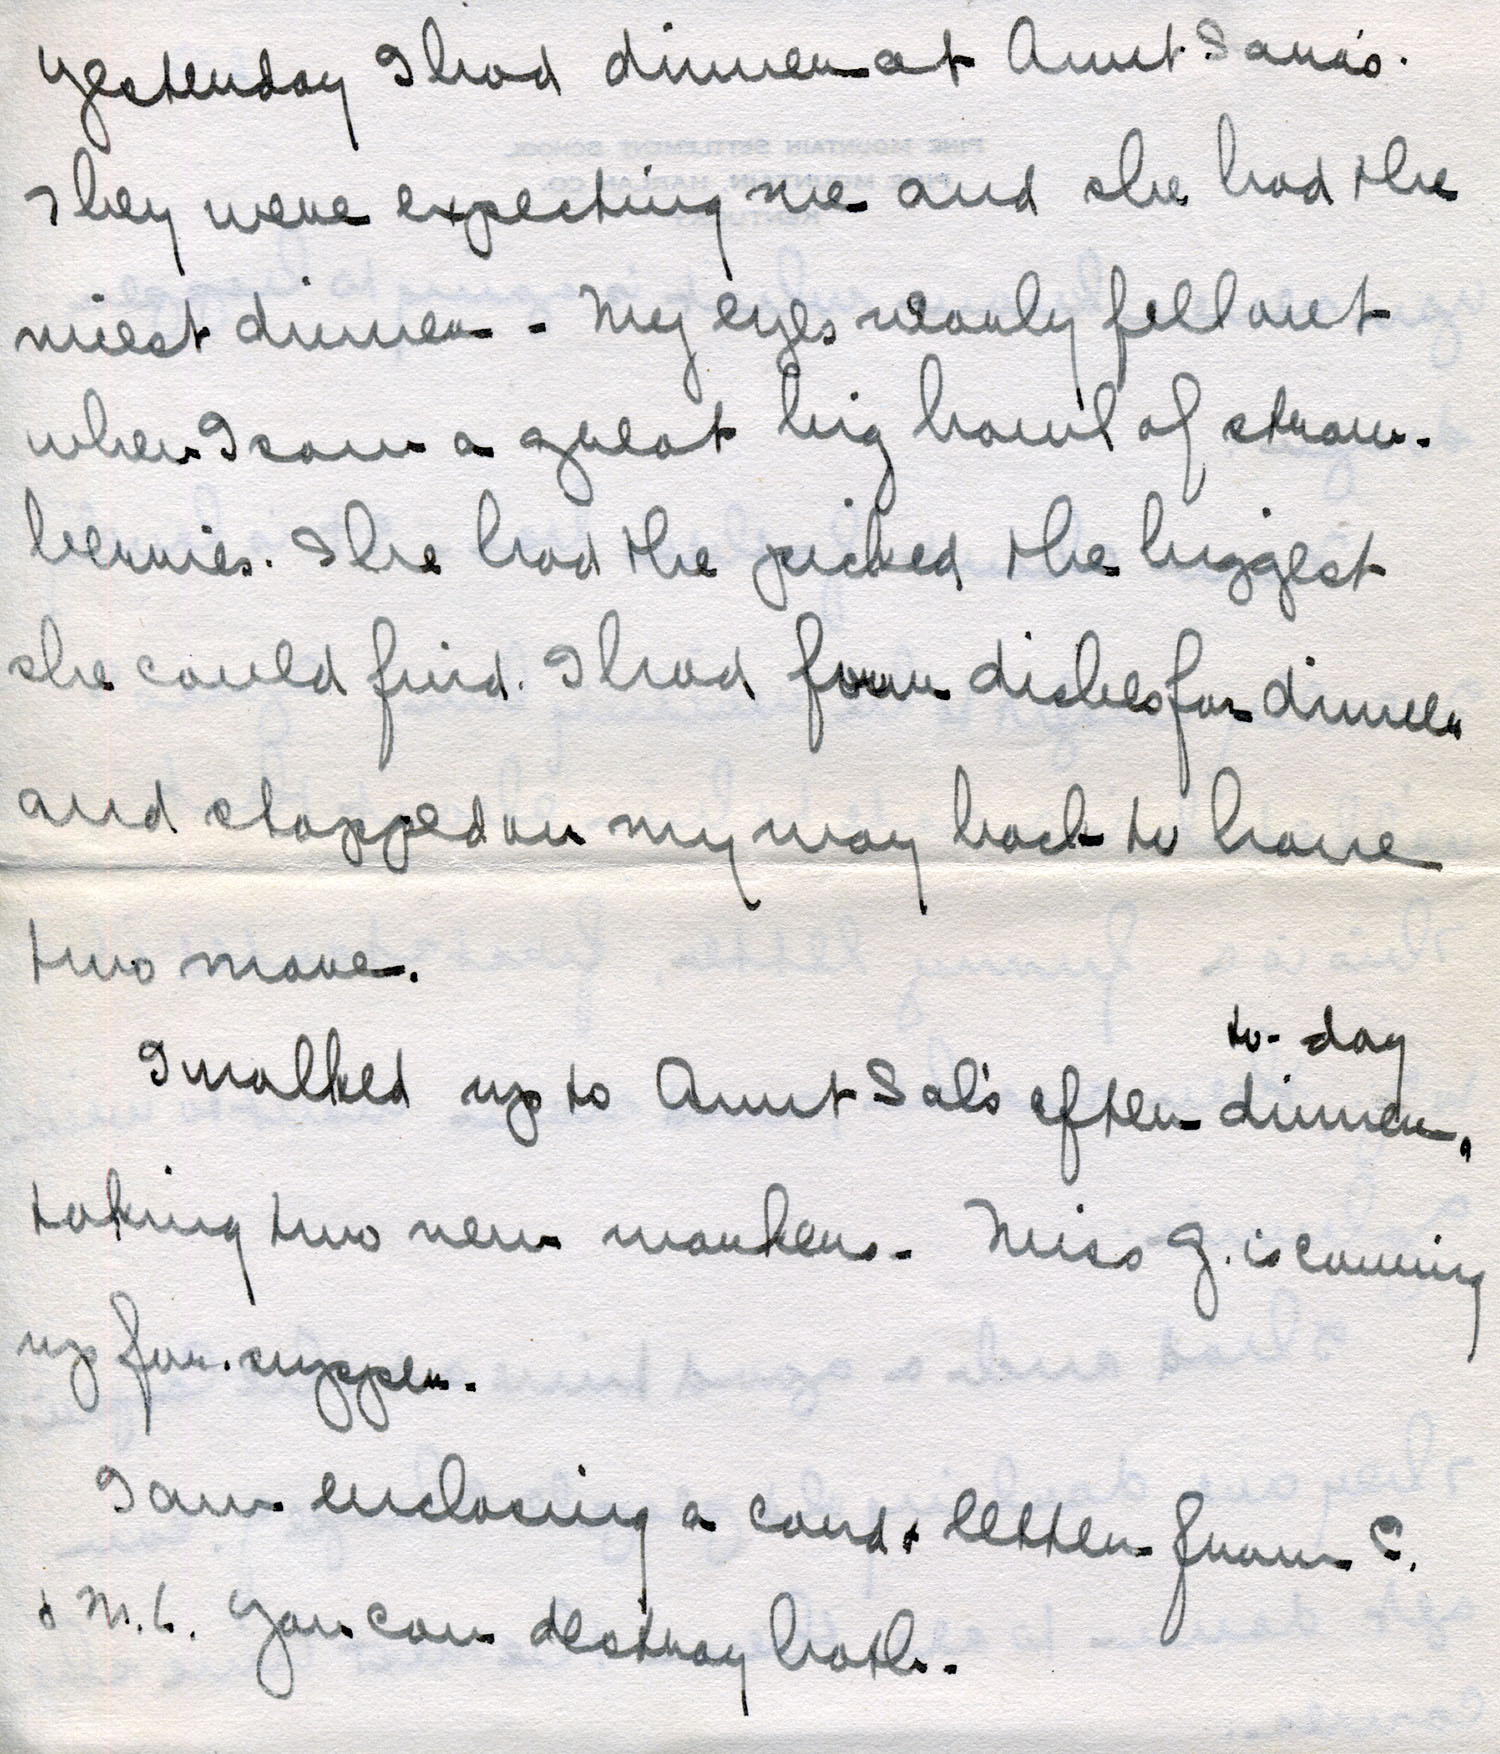 Yesterday I had dinner at Aunt Sara's.
They were expecting me and she had the
niest dinner - My eyes nearly fell out
when I saw a great big bowl of straw-
berries. She had the picked the biggest
she could find. I had four dishes for dinner
and stopped on my way back to have
two more.
to-day
I walked up to Aunt Sal's after dinner,
taking two new markers. Miss G. is coming
up for supper.
I am enclosing a card & letter from C.
& M.L. You can destroy both.
PINE MOUNTAIN SETTLEMENT SCHOOL
PINE MOUNTAIN, HARLAN CO.
KENTUCKY